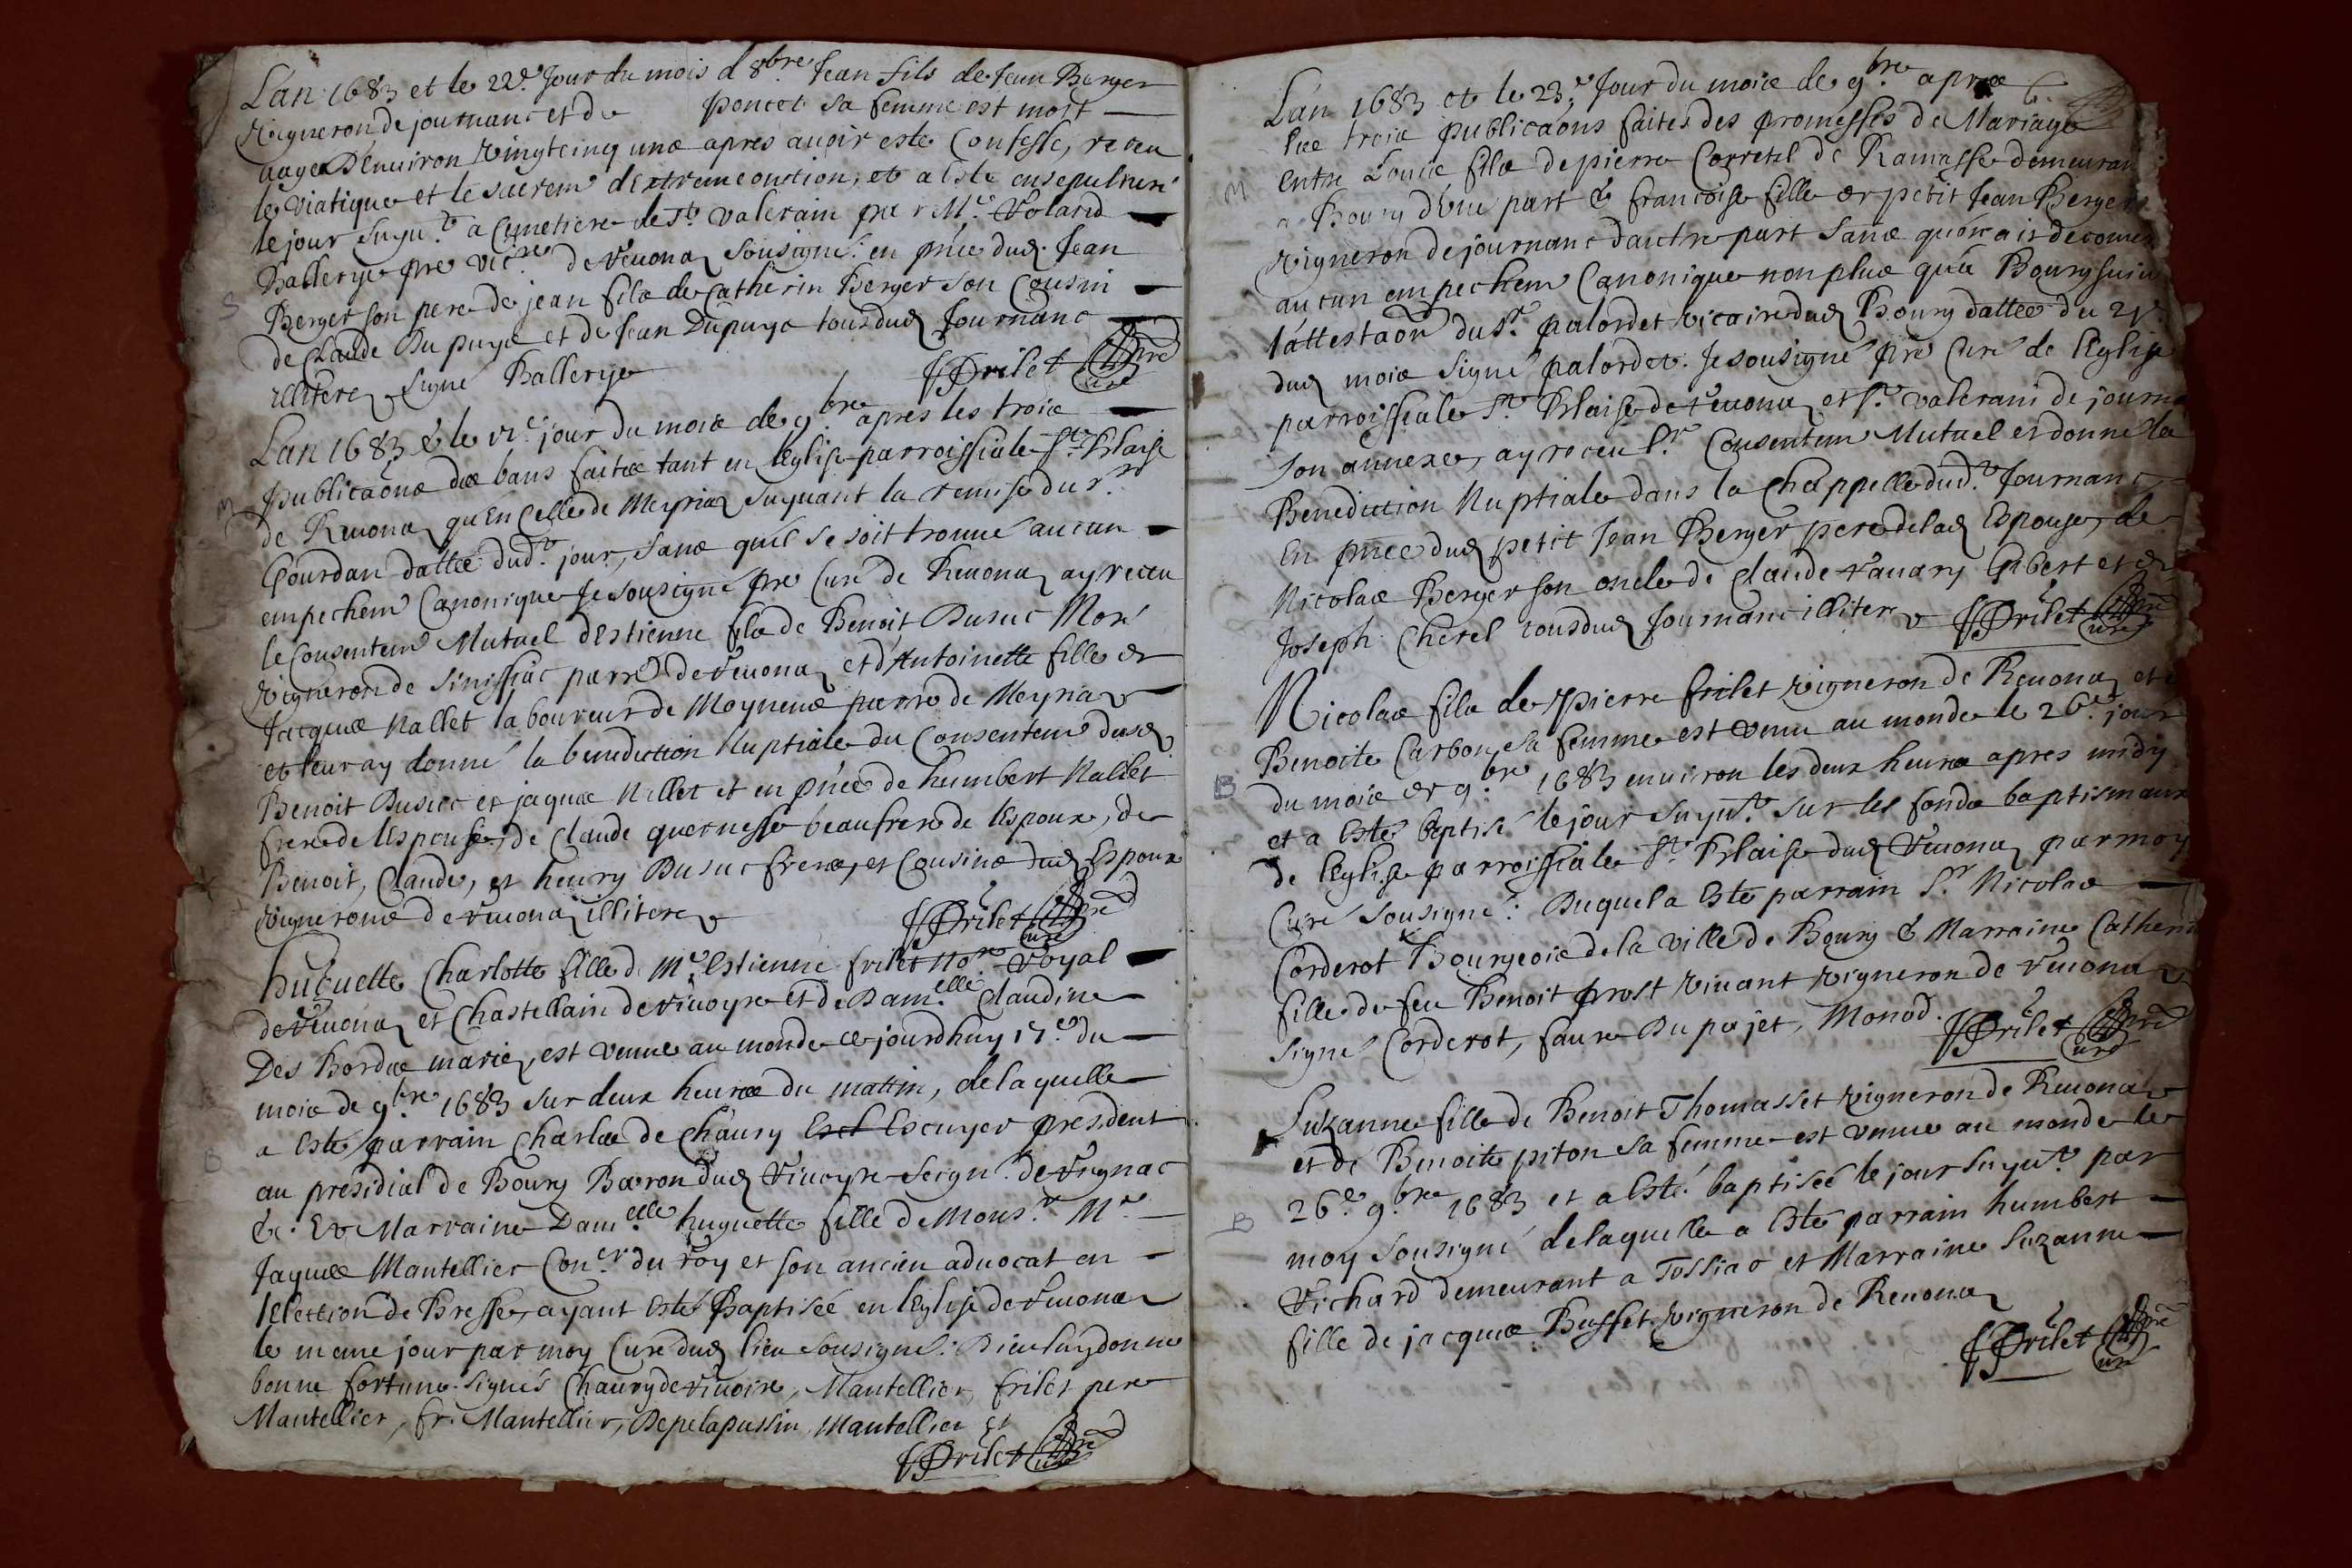 L'an 1683 et le 22e Jour du mois d 8bre Jean fils de Jean Berger
Vigneron de journanc et de poncet sa femme est mort
aagé d'Environ Vingtcinq ans apres auoir esté Confessé, receu
le Viatique et le sacrem d'extreme onction, et a esté ensepulturé
le jour suyut a Cymetiere de St Valerain par Mre Roland
Ballerye pre vicre de Reuonaz sousigné: en pnce dud Jean
S
Berger son pere de jean fils de Catherin Berger son Cousin
de Claude Du puys et de Jean Dupuys tous dud Journanc
illiterez signé Ballerye JFrilet pre curé
Lan 1683 & le jour du mois de 9bre apres les trois
publicaons des bans faites tant en leglise parroissiale St Blaise
M
de Reuonaz qu'En Celle de Meyriaz suyuant la remise du sr
Gourdan dattée dudt jour, sans quil se soit trouué aucun
empechem Canonique Je sousigné pre Curé de Reuonaz ay receu
le Consentem Mutuel d'Estienne fils de Benoit Dusuc Moré
Vigneron de Sinissiac parre de Reuonaz et d'Antoinette fille de
Jacques Nallet laboureur de Moyneus parre de Meyriaz
et leur ay donné la benediction Nuptiale du Consentem dusd
Benoit Dusuc et jaques Nallet et en pnce de humbert Nallet
frere de lEspouse, de Claude quernesse beaufrere de lEspoux, de
Benoit, Claude, et henry Dusuc freres, et Cousins dud Espoux
Vignerons de Reuonaz illiterez JFrilet pre curé
huguette Charlotte fille de Mre Estienne frilet nore Royal
de Reuonaz et Chastellain de Riuoyre et de Damelle Claudine
Des Bordes mariez, est venue au monde ce jourdhuy 17e du
mois de 9bre 1683 sur deux heures du mattin, de laquelle
a esté parrain Charles de Chaury Escuyer president
B
au presidial de Bourg Baron dud Riuoyre seignr de Vignac
&c. Et Marraine Damelle huguette fille de Monsr Mre
Jaques Mantellier Coner du roy et son ancien aduocat en
lElection de Bresse, ayant esté Baptisée en lEglise de Reuonaz
le meme jour par moy Curé dud lieu sousigné: Dieu luy donne
bonne fortune. signés Chaury de riuoire, Mantellier, frilet pere
Mantellier, fr. Mantellier, Depelapussin, Mantellier et
JFrilet pre curé
L'an 1683 et le 23e Jour du mois de 9bre apres
les trois publicaons faites des promesses de Mariage
entre Louis fils de pierre Corretel de Ramasse demeurant
M
a Bourg d'une part & francoise fille de petit Jean Berger
Vigneron de journanc dautre part sans qu'on ait decouvert
aucun empechem Canonique non plus qu'a Bourg suiu
lattestaon du sr palordet Vicaire dud Bourg dattée du 21e
dud mois signé palordet. Je sousigné pre Curé de lEglise
parroissiale St Blaise de Reuonaz et St valerain de journa
son annexe, ay receu lr Consentem Mutuel et donné la
Benediction Nuptiale dans la Chappelle dudt Journanc
En pnce dud petit Jean Berger pere de lad Espouse, de
Nicolas Berger son oncle de Claude Rauary Gibert et de
Joseph Cherel tous dud Journanc illiterez JFrilet pre curé
Nicolas fils de Pierre frilet Vigneron de Reuonaz et
Benoite Carbon sa femme est venu au monde le 26e jour
B
du mois de 9bre 1683 enuiron les deux heures apres midy
et a esté baptisé le jour suyut sur les fonds baptismaux
de lEglise parroissiale St Blaise dud Reuonaz par moy
Curé sousigné: Duquel a esté parrain Sr Nicolas
Corderot Bourgeois de la ville de Bourg & Marraine Catherine
fille de feu Benoit prost Viuant Vigneron de Reuonaz
signés Corderot, faure Dupajet, Monod. JFrilet pre curé
Suzanne fille de Benoit Thomasset Vigneron de Reuonaz
et de Benoite piton sa femme est venue au monde le
26e 9bre 1683 et a esté baptisée le jour suyut par
B
moy sousigné de laquelle a esté parrain humbert
Vichard demeurant a Tossiac et Marraine Suzanne
fille de jacques Busset Vigneron de Reuonaz
JFrilet pre curé